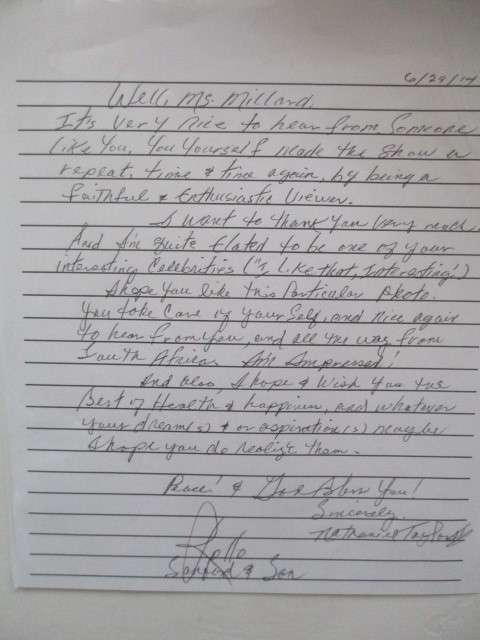 6/29/14
Well, Ms. Millard,
It's very nice to hear from Someone
like You, You Yourself made the Show a
repeat, time & time again, by being a
faithful & Enthusiastic Viewer.
I want to thank You very much,
And I'm quite Elated to be one of your
interesting Celebrities ("I like that, Interesting!)
I hope You like this Particular photo.
You take Care of Your Self, and nice again
to hear from You, and all the way from
South Africa. I'm Impressed!
And also, I hope & Wish You the
Best of Health & happiness, and whatever
your dream(s) & or aspiration(s) maybe
I hope you do realize them.
Peace! & God Bless You!
Sincerely,
Nathaniel Taylor
Rollo
Sanford & Son